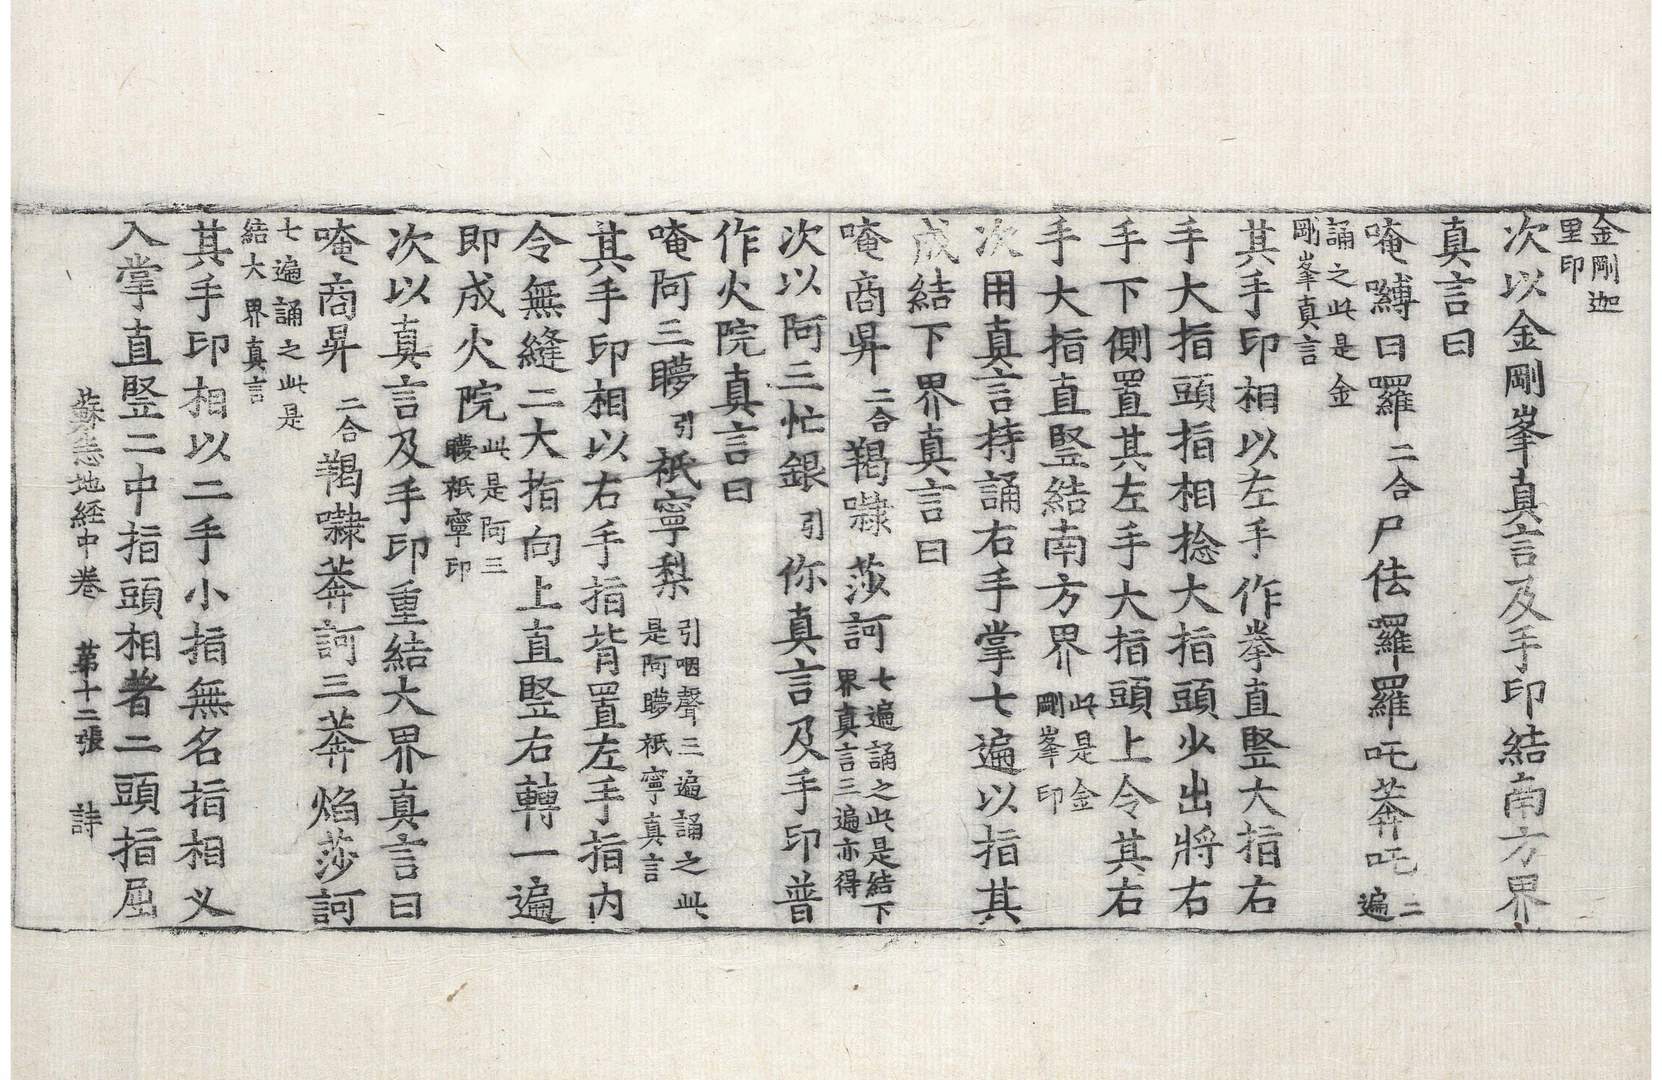 金剛迦
里印
次以金剛峯真言及手印結南方界
真言曰
唵嚩日囉二合尸佉囉囉吒莽吒二遍
誦之此是金
剛峯真言
其手印相以左手作拳直竪大指右
手大指頭指相捻大指頭少出將右
手下側置其左手大指頭上令其右
手大指直竪結南方界此是金剛峯印
次用真言持誦右手掌七遍以指其
成結下界真言曰
唵商昇二合羯㘑莎訶七遍誦之此是結下界真言三遍亦得
次以阿三忙銀引你真言及手印普
作火院真言曰
唵阿三矇引祇寧梨引呬聲三遍誦之此是阿矇祇寧真言
其手印相以右手指背置左手指内
令無縫二大指向上直竪右轉一遍
即成火院此是阿三矇祇寧印
次以真言及手印重結大界真言曰
唵商昇二合羯㘑莽訶三莽焰莎訶
七遍誦之此是
結大界真言
其手印相以二手小指無名指相叉
入掌直竪二中指頭相著二頭指屈
蘇悉地経中卷 第十二張 詩